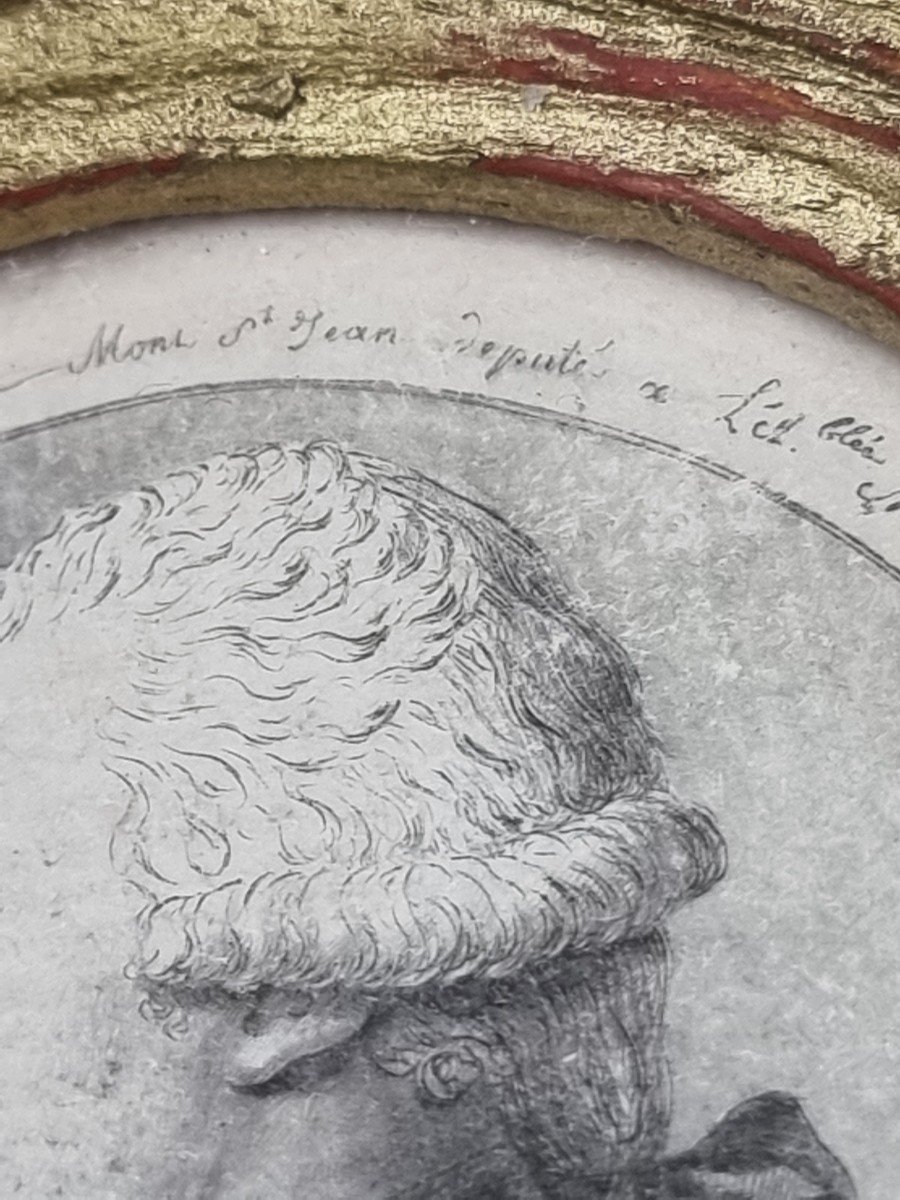 Mons St Jean Deputé a L'A.blée